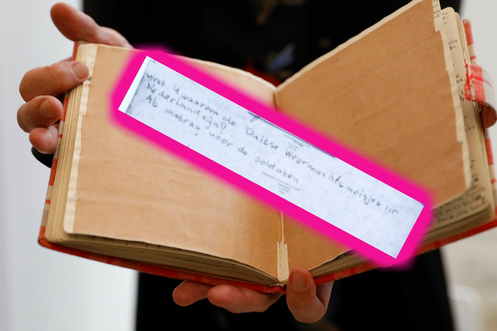 Weet U waarom de Duitse Weermachtsmeisjes in
Nederland zijn?
Als matras voor de soldaten